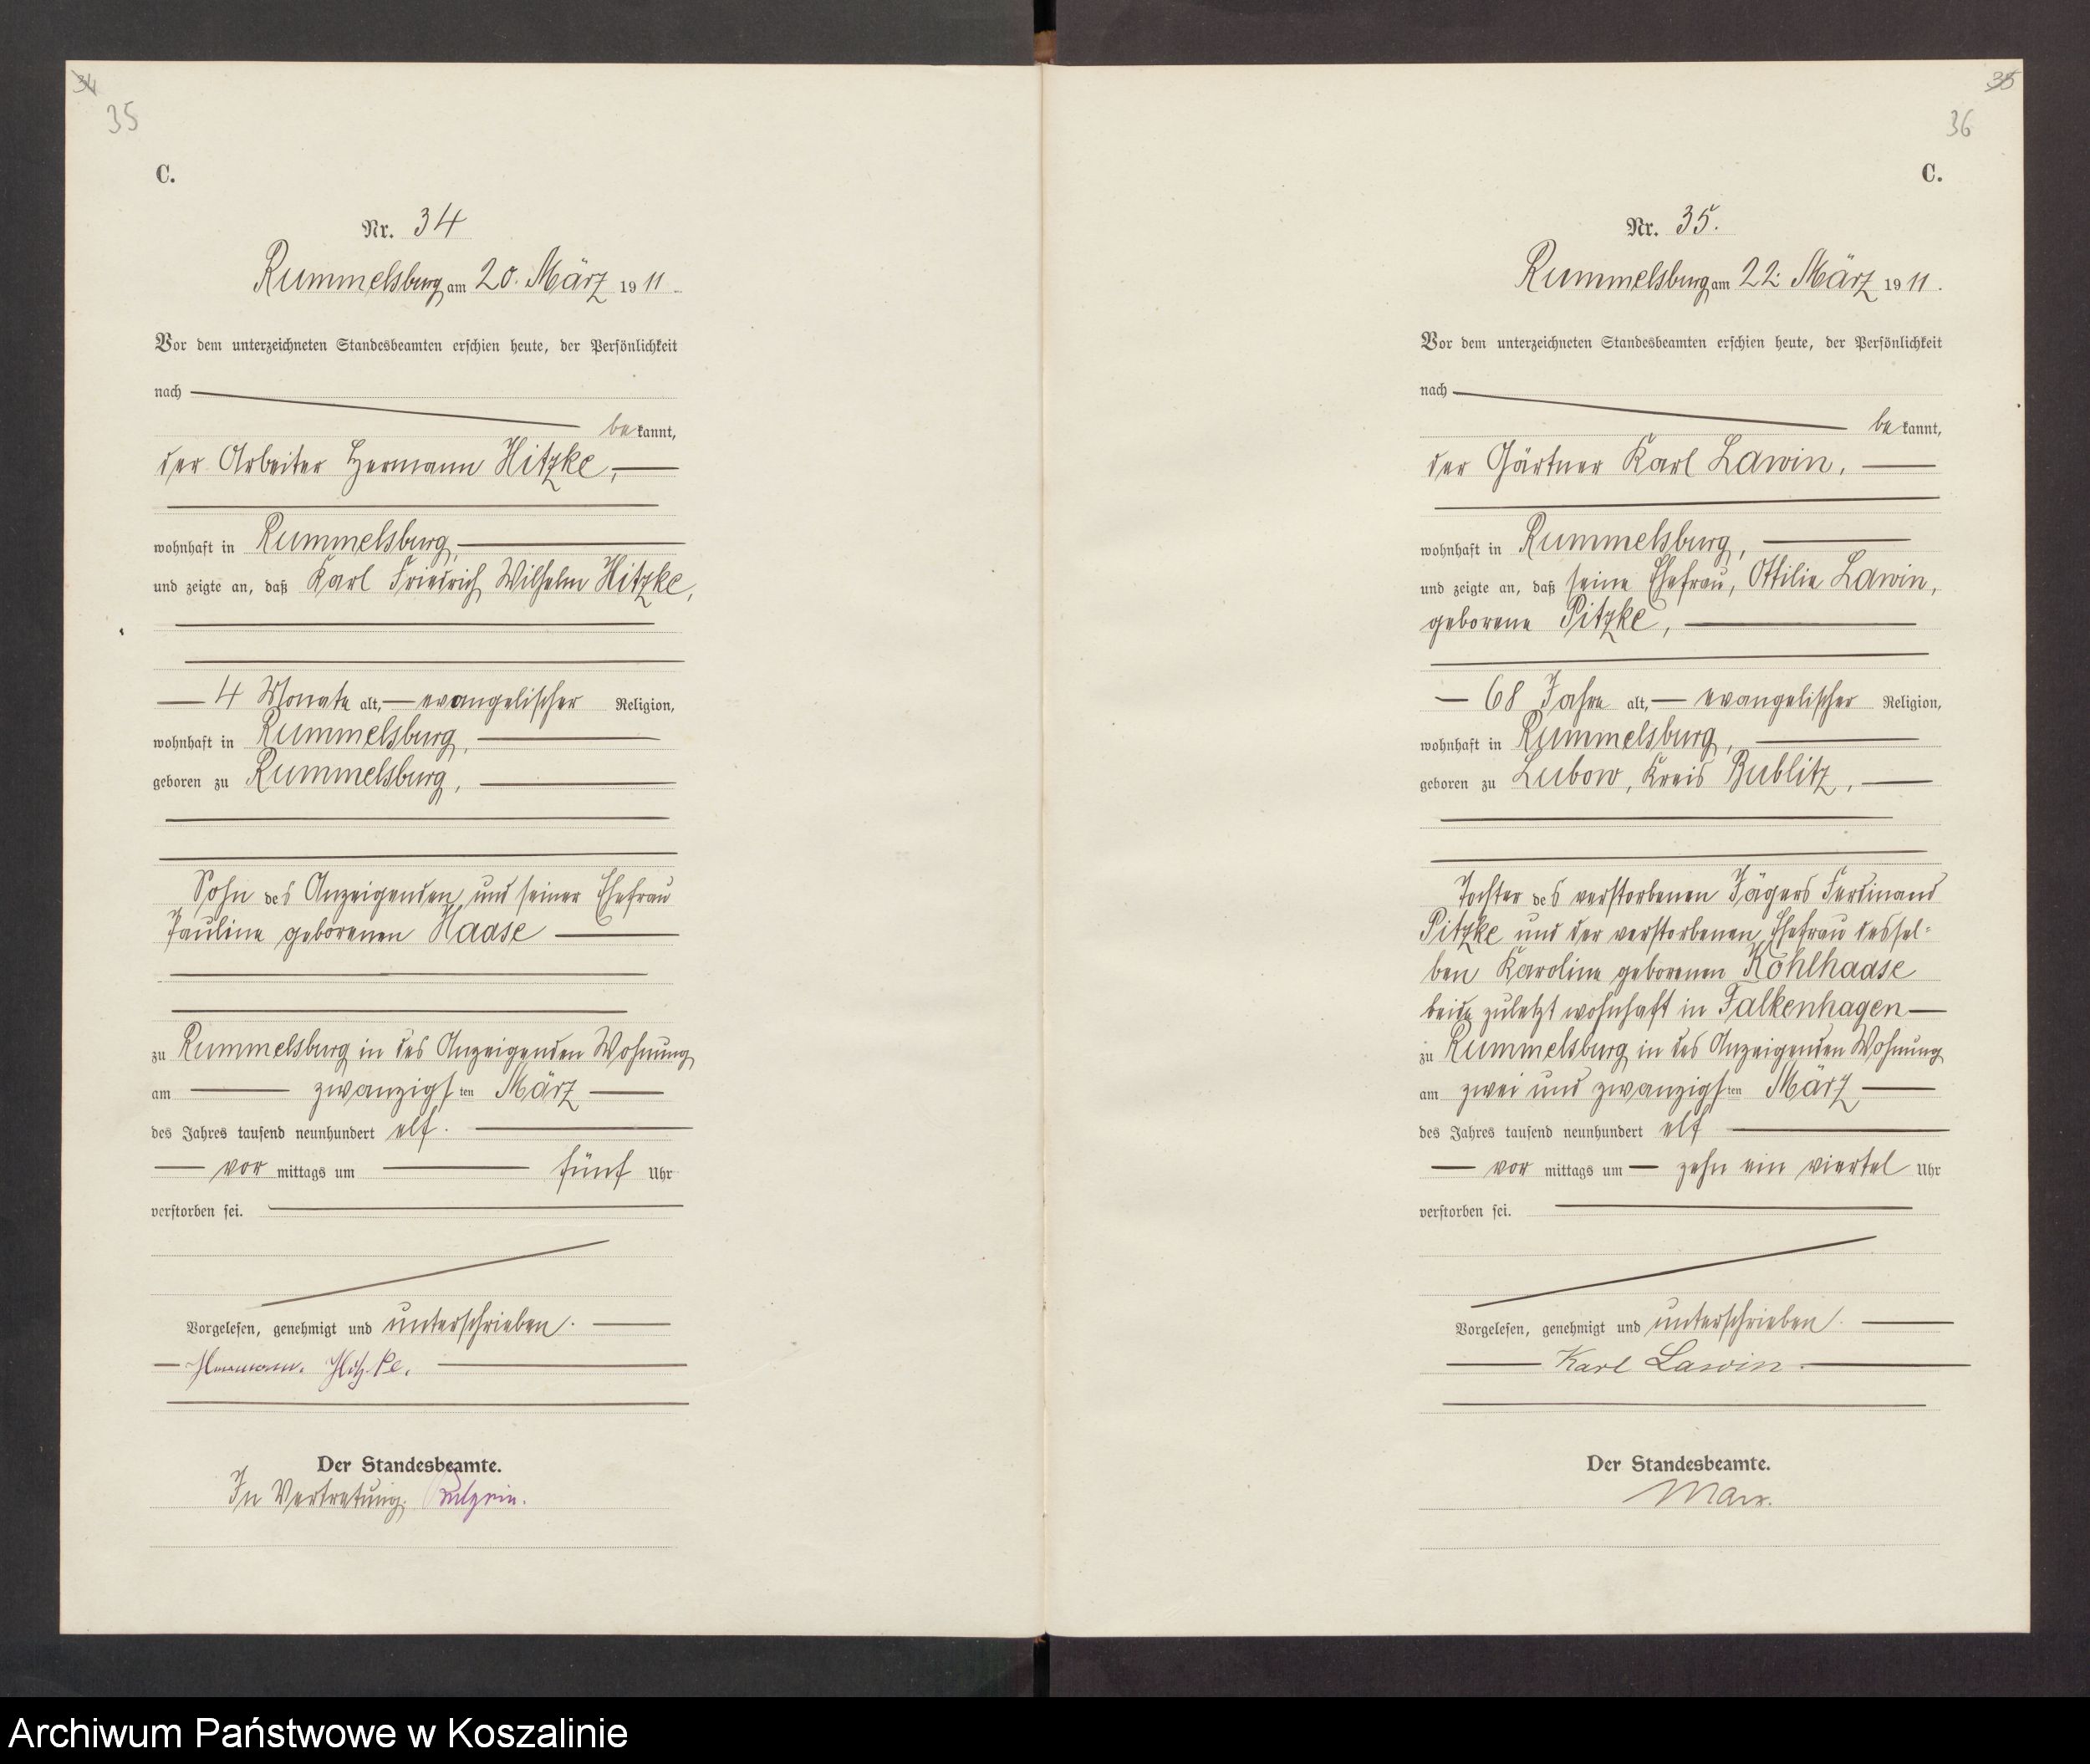 34
35
C.
Nr. 34
Rummelsburg am 20. März 1911
Vor dem unterzeichneten Standesbeamten erschien heute, der Persönlichkeit
nach
bekannt,
der Arbeiter Hermann Hitzke,
wohnhaft in Rummelsburg,
und zeigte an, daß Karl Friedrich Wilhelm Hitzke,
4 Monate alt, evangelischer Religion,
wohnhaft in Rummelsburg,
geboren zu Rummelsburg,
Sohn des Anzeigenden und seiner Ehefrau
Pauline geborenen Haase
zu Rummelsburg in des Anzeigenden Wohnung
am zwanzigsten März
des Jahres tausend neunhundert elf.
vormittags um fünf Uhr
verstorben sei.
Vorgelesen, genehmigt und unterschrieben.
Hermann. Hitzke.
Der Standesbeamte.
In Vertretung.
35
36
C.
Nr. 35.
Rummelsburg am 22. März 1911.
Vor dem unterzeichneten Standesbeamten erschien heute, der Persönlichkeit
nach
bekannt,
der Gärtner Karl Lawin,
wohnhaft in Rummelsburg,
und zeigte an, daß seine Ehefrau, Ottilie Lawin,
geborene Pitzke,
68 Jahre alt, evangelischer Religion,
wohnhaft in Rummelsburg,
geboren zu Lubow, Kreis Bublitz,
Tochter des verstorbenen Jägers Ferdinand
Pitzke und der verstorbenen Ehefrau dessel-
ben Karoline geborenen Kohlhaase
beide zuletzt wohnhaft in Falkenhagen
zu Rummelsburg in des Anzeigenden Wohnung
am zwei und zwanzigsten März
des Jahres tausend neunhundert elf
vormittags um zehn ein viertel Uhr
verstorben sei.
Vorgelesen, genehmigt und unterschrieben.
Karl Lawin.
Der Standesbeamte.
Marx.
Archiwum Państwowe w Koszalinie